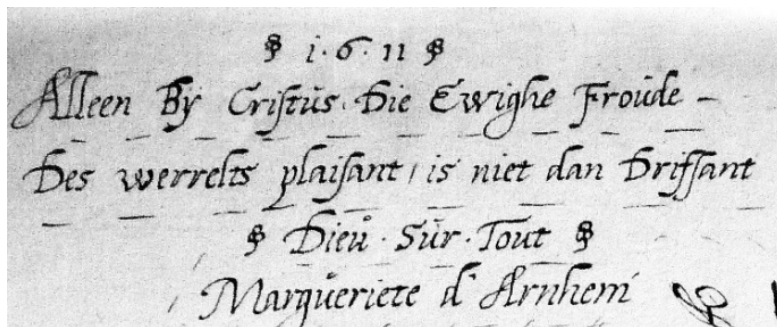 § i · 6 · 11 §
Alleen By Cristus Die Ewighe Froude –
Des werrelts plaisant, is niet dan Driffant
§ Dieu · Sur · Tout §
Margueriete d' Arnhem